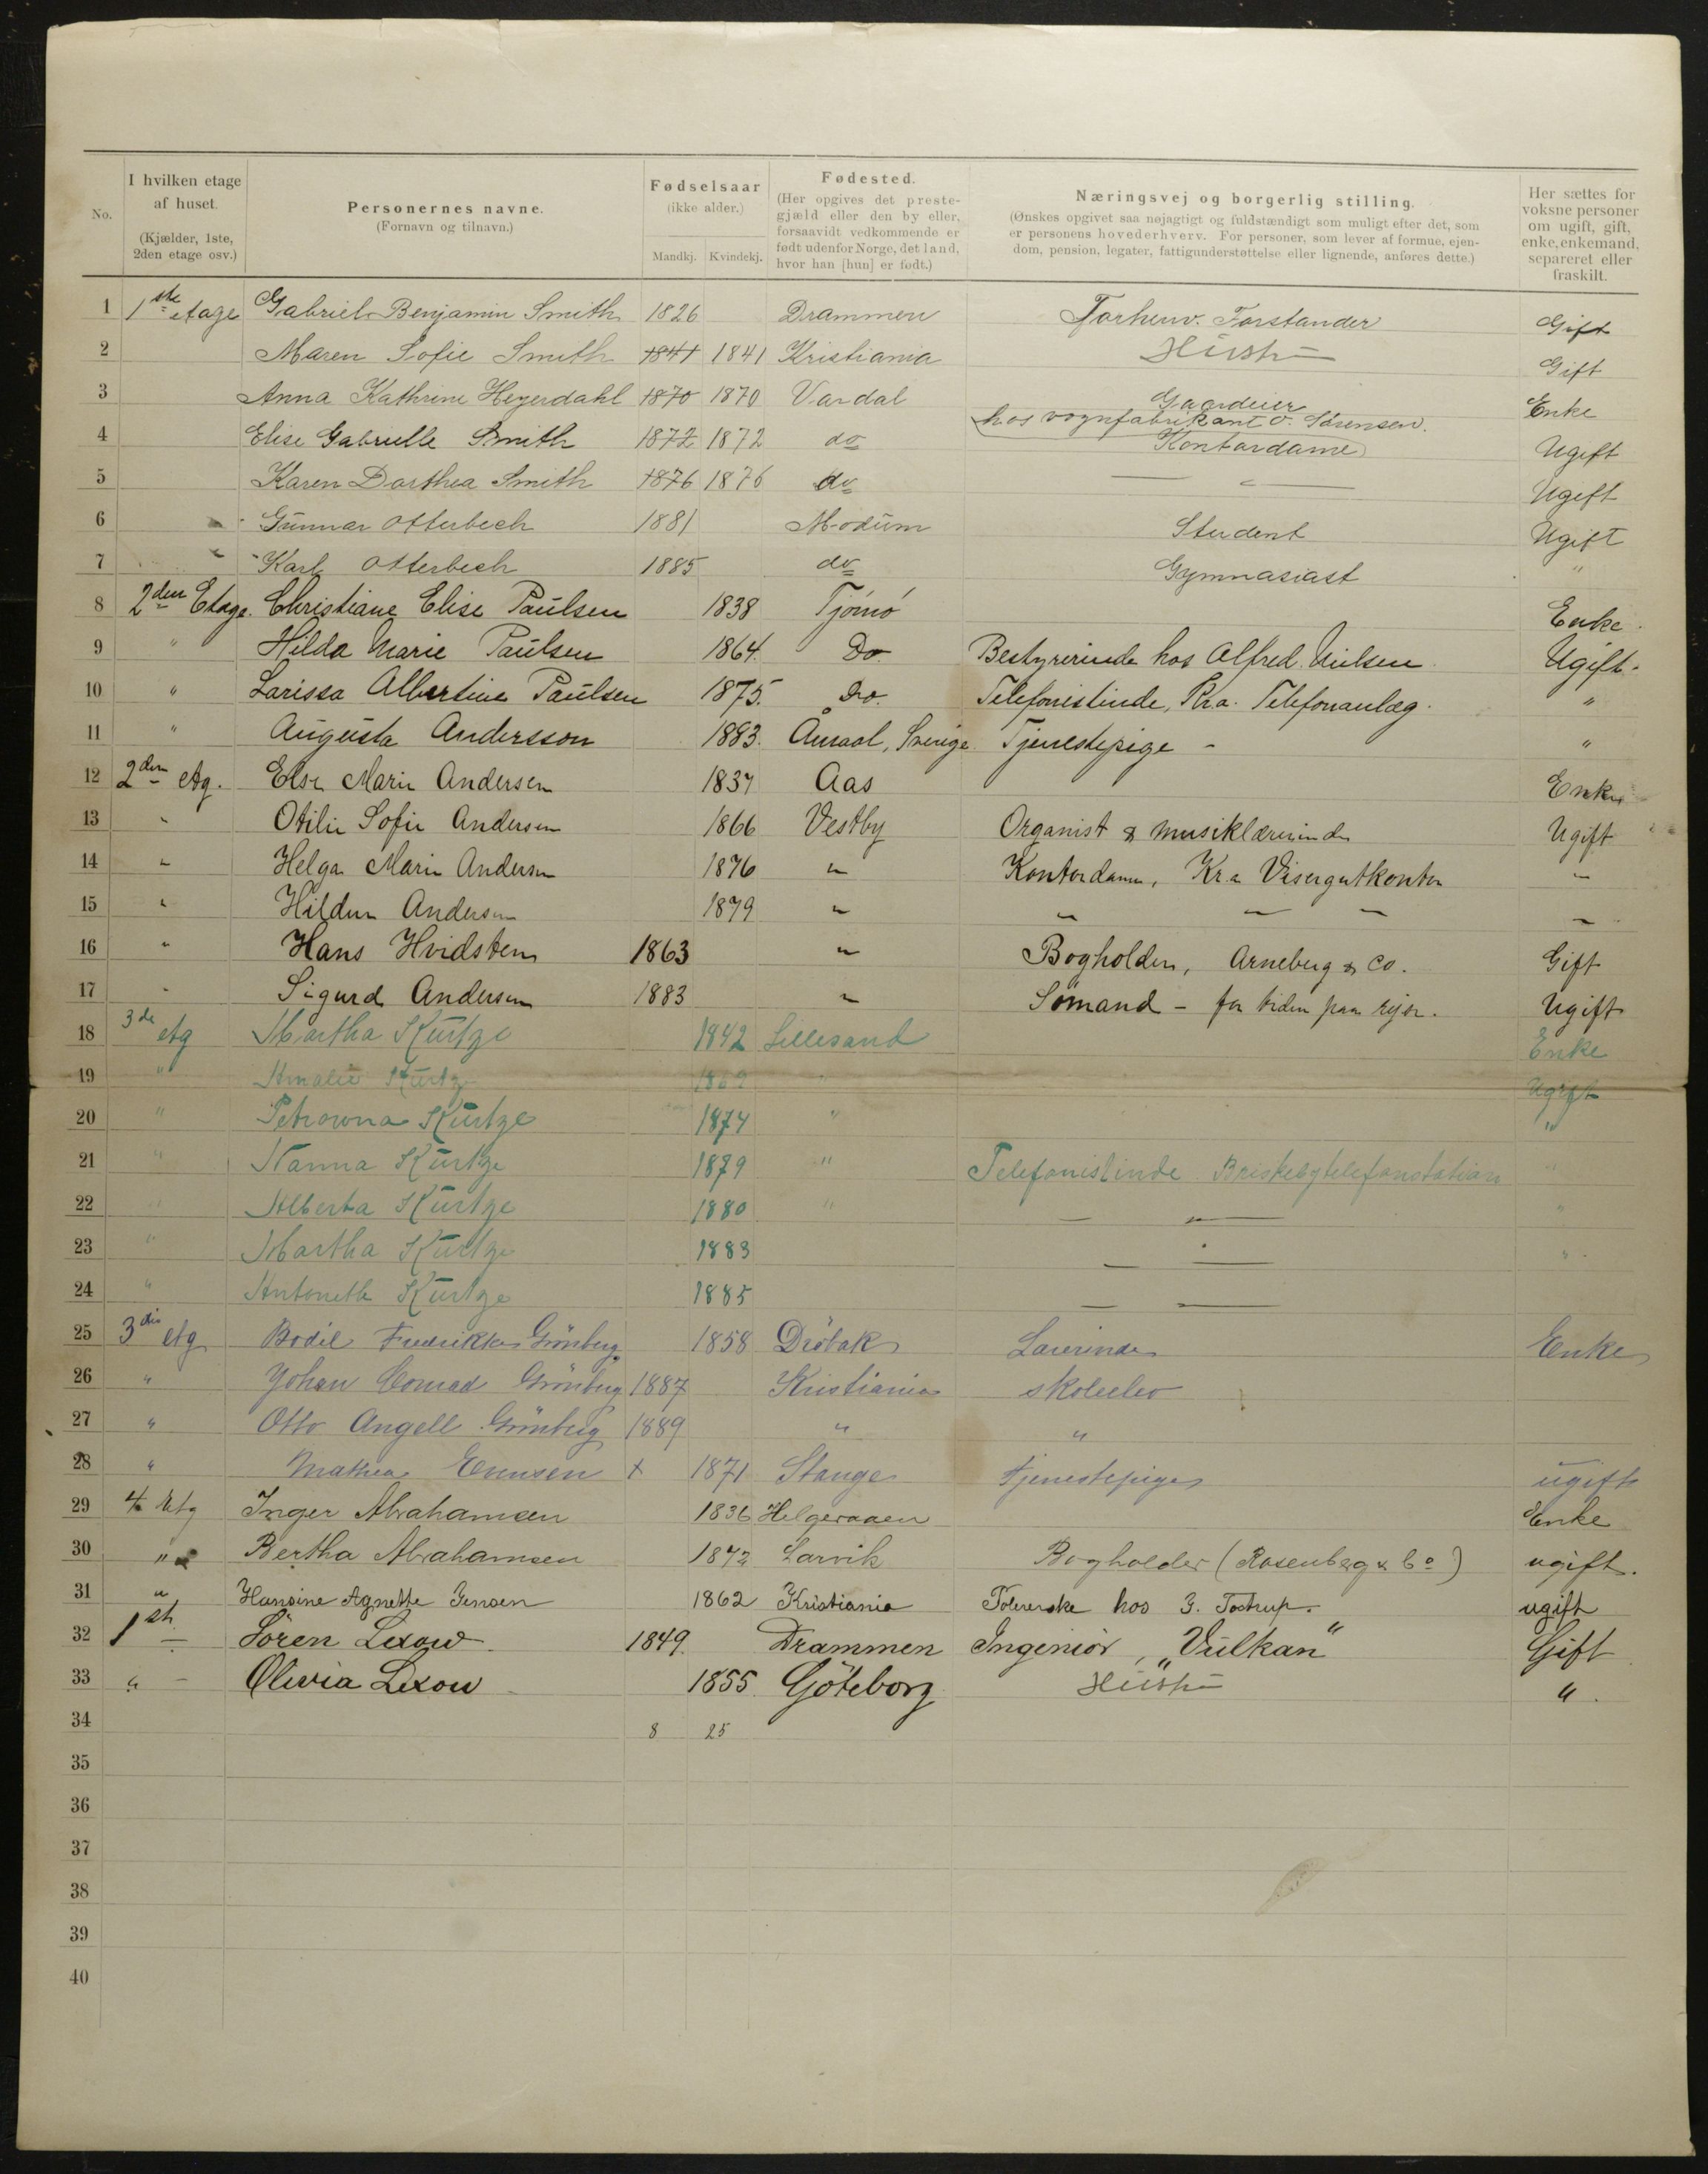 No.
I hvilken etage af huset. (Kjælder, 1ste, 2den etage osv.)
Personernes navne. (Fornavn og tilnavn.)
Fødselsaar (ikke alder.)
Mandkj. Kvindekj.
Fødested. (Her opgives det prestegjæld eller den by eller, forsaavidt vedkommende er født udenfor Norge, det land, hvor han [hun] er født.)
Næringsvej og borgerlig stilling. (Ønskes opgivet saa nøjagtigt og fuldstændigt som muligt efter det, som er personens hovederhverv. For personer, som lever af formue, ejendom, pension, legater, fattigunderstøttelse eller lignende, anføres dette.)
Her sættes for voksne personer om ugift, gift, enke, enkemand, separeret eller fraskilt.
1 1ste etage Gabriel Benjamin Smith 1826 Drammen Forhenv. Forstander Gift
2 Maren Sofie Smith 1841 1841 Kristiania Hustr Gift
3 Anna Kathrine Heyerdahl 1870 1870 Vardal Gaardeier Enke
4 Elise Gabrielle Smith 1872 1872 do hos vognfabrikant O. Sørensen. Kontordame Ugift
5 Karen Dorthea Smith 1876 1876 do — " — Ugift
6 Gunnar Otterbech 1881 Modum Student Ugift
7 Karl Otterbech 1885 do Gymnasiast "
8 2den Etage. Christiane Elise Paulsen 1838 Tjömö Enke.
9 " Hilda Marie Paulsen 1864. Do Bestyrerinde hos Alfred Nielsen Ugift.
10 " Larissa Albertine Paulsen 1875. Do. Telefonistinde, Kra. Telefonanlæg. "
11 " Augusta Andersson 1883. Åmaal, Sverige. Tjenestepige - "
12 2den etg. Else Marie Andersen 1837 Aas Enke
13 " Otilie Sofie Andersen 1866 Vestby Organist & musiklærerinde Ugift
14 " Helga Marie Andersen 1876 " Kontordame, Kra Visergutkontor "
15 " Hildur Andersen 1879 " " " " "
16 " Hans Hvidsten 1863 " Bogholder, Arneberg & Co. Gift
17 " Sigurd Andersen 1883 " Sömand - for tiden paa rejse. Ugift
18 3de etg Martha Kurtze 1842 Lillesand Enke
19 " Amalie Kurtze 1869 " Ugift
20 " Petrowna Kurtze 1874 " "
21 " Nanna Kurtze 1879 " Telefonistinde Briskebytelefonstation "
22 " Alberta Kurtze 1880 " — " — "
23 " Martha Kurtze 1883 — " — "
24 " Antonette Kurtze 1885 — —
25 3die etg Bodil Fredrikke Grönberg 1858 Dröbak Lærerinde Enke
26 " Johan Conrad Grönberg 1887 Kristiania skoleelev
27 " Otto Angell Grönberg 1889 " "
28 " Mathea Evensen x 1871 Stange Tjenestepige ugift
29 4 Etg Inger Abrahamsen 1836 Helgeroaen Enke
30 " Bertha Abrahamsen 1872 Larvik Bogholder (Rosenberg & Co) ugift.
31 " Hansine Agnette Jensen 1862 Kristiania Polererske hos J. Tostrup. ugift
32 1st — Sören Lexow 1849. Drammen Ingeniör, „Vulkan" Gift
33 " — Olivia Lexow 1855 Göteborg Hustr "
34 8 25
35
36
37
38
39
40